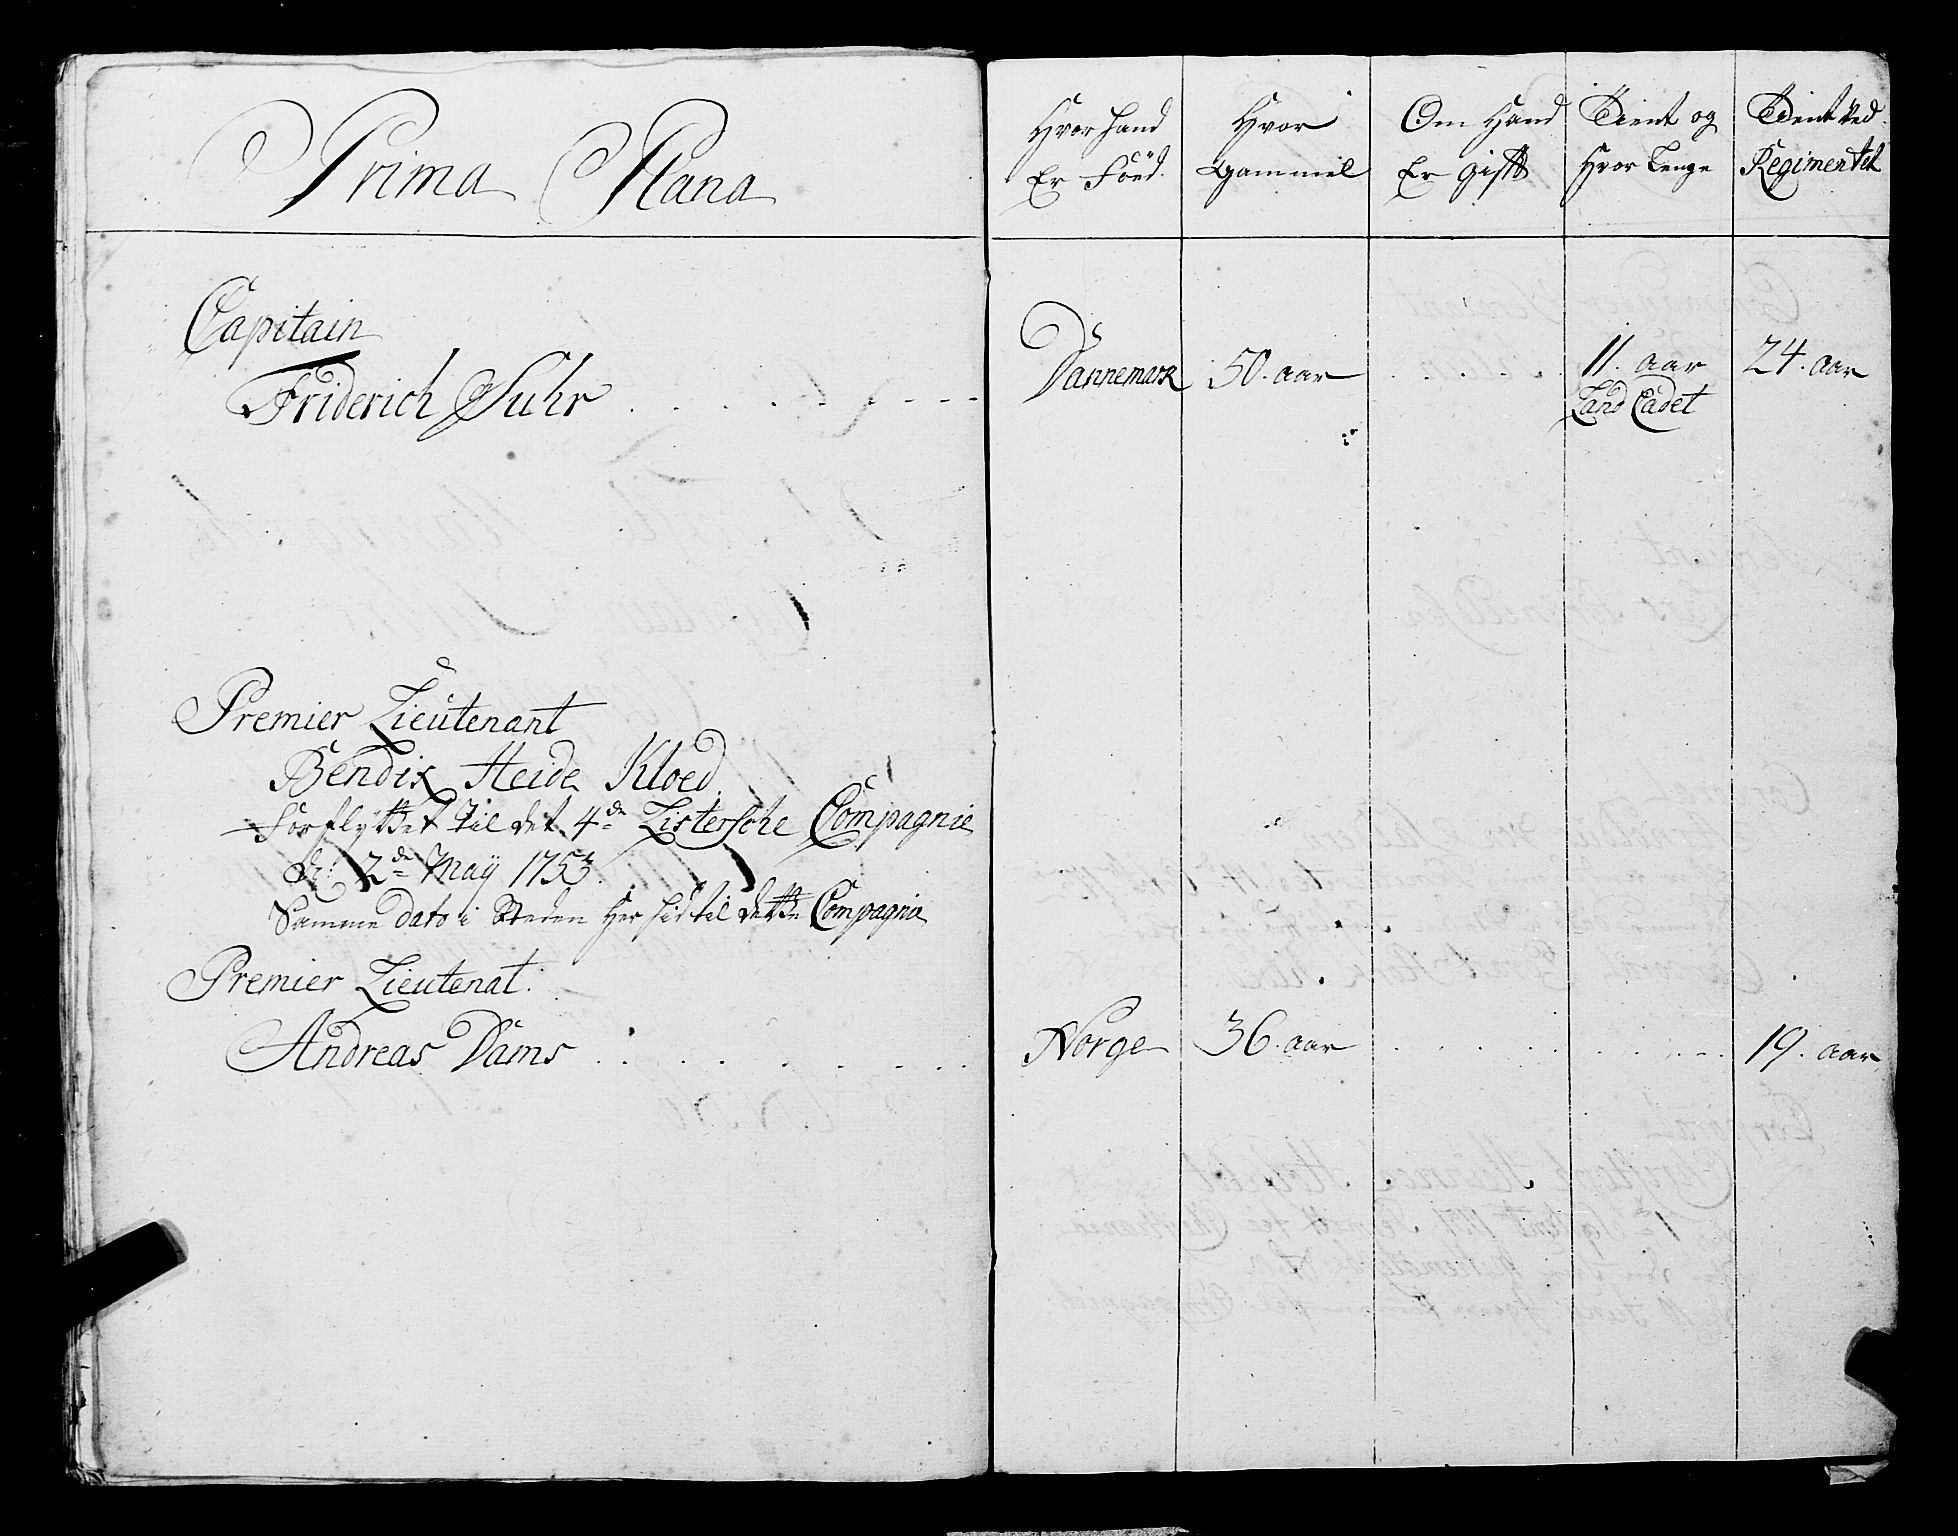 Prima Plana
Hvor hand Er Föed.
Hvor Gammel
Om Hand Er gift
Tient og Hvor Lenge
Tient ved Regimentet
Capitain
Friderich Suhr
Dannemark
50. aar
11. aar
Land Cadet
24. aar
Premier Lieutenant
Bendix Heide Kloed
Forflyttet til det 4de Listersche Compagnie
d: 2de Maÿ 1753.
Samme dato i Steden Her hid til dette Compagnie
Premier Lieutenat.
Andreas Dams
Norge
36. aar
19. aar